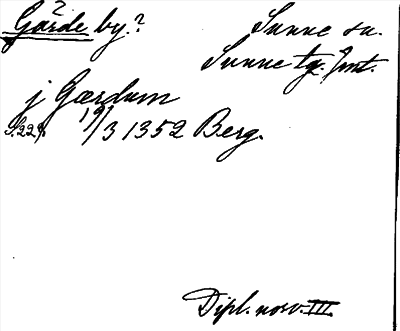 2
Gärde by.? Sunne sn.
Sunne tg. Jmt.
j Gærdum
S.229. 19/3 1352 Berg.
Dipl. norv. III.